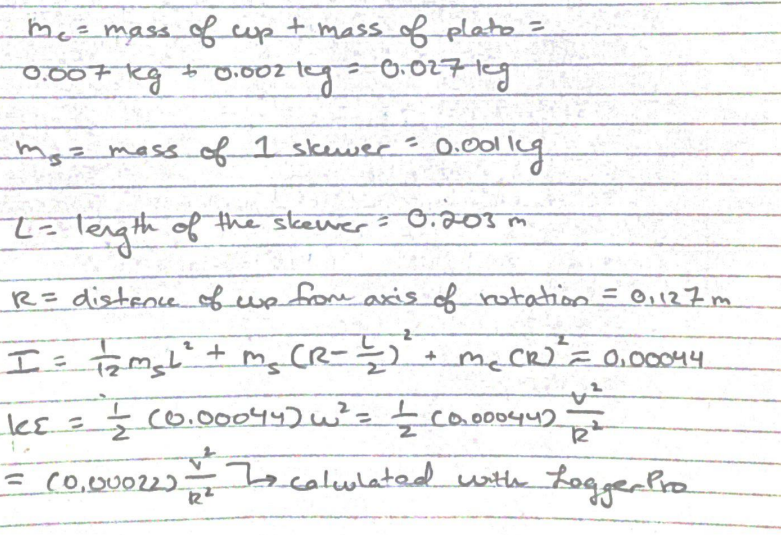 m_c = mass of cup + mass of plato =
0.007 kg + 0.002 kg = 0.027 kg
m_s = mass of 1 skewer = 0.001 kg
L = length of the skewer = 0.203 m
R = distance of cup from axis of rotation = 0.127 m
I = 1/12 m_s L² + m_s (R - L/2)² + m_c (R)² = 0.00044
KE = 1/2 (0.00044) ω² = 1/2 (0.00044) v²/R²
= (0.00022) v²/R² ↳ calculated with LoggerPro